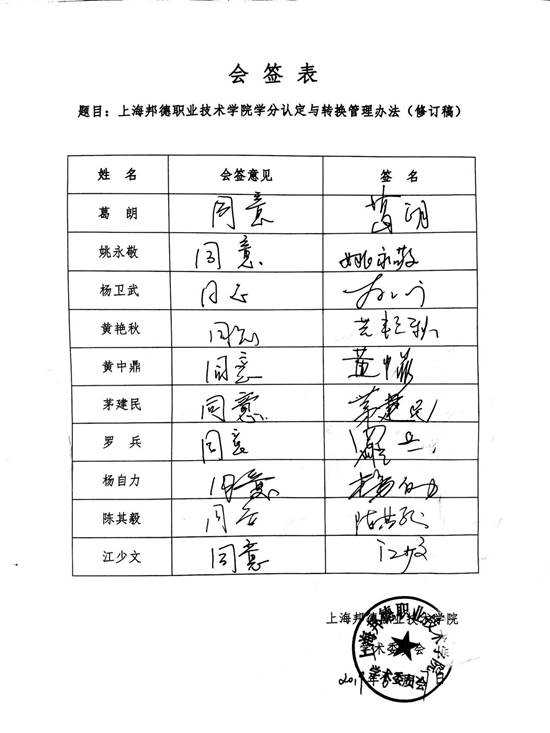 会签表
题目：上海邦德职业技术学院学分认定与转换管理办法（修订稿）
姓 名 会签意见 签 名
葛 朗 同意 葛朗
姚永敬 同意 姚永敬
杨卫武 同意
黄艳秋 同意 黄艳秋
黄中鼎 同意 黄中鼎
茅建民 同意 茅建民
罗 兵 同意 罗兵
杨自力 同意 杨自力
陈其毅 同意 陈其毅
江少文 同意 江少文
上海邦德职业技术学院
学术委员会
上海邦德职业技术学院
学术委员会